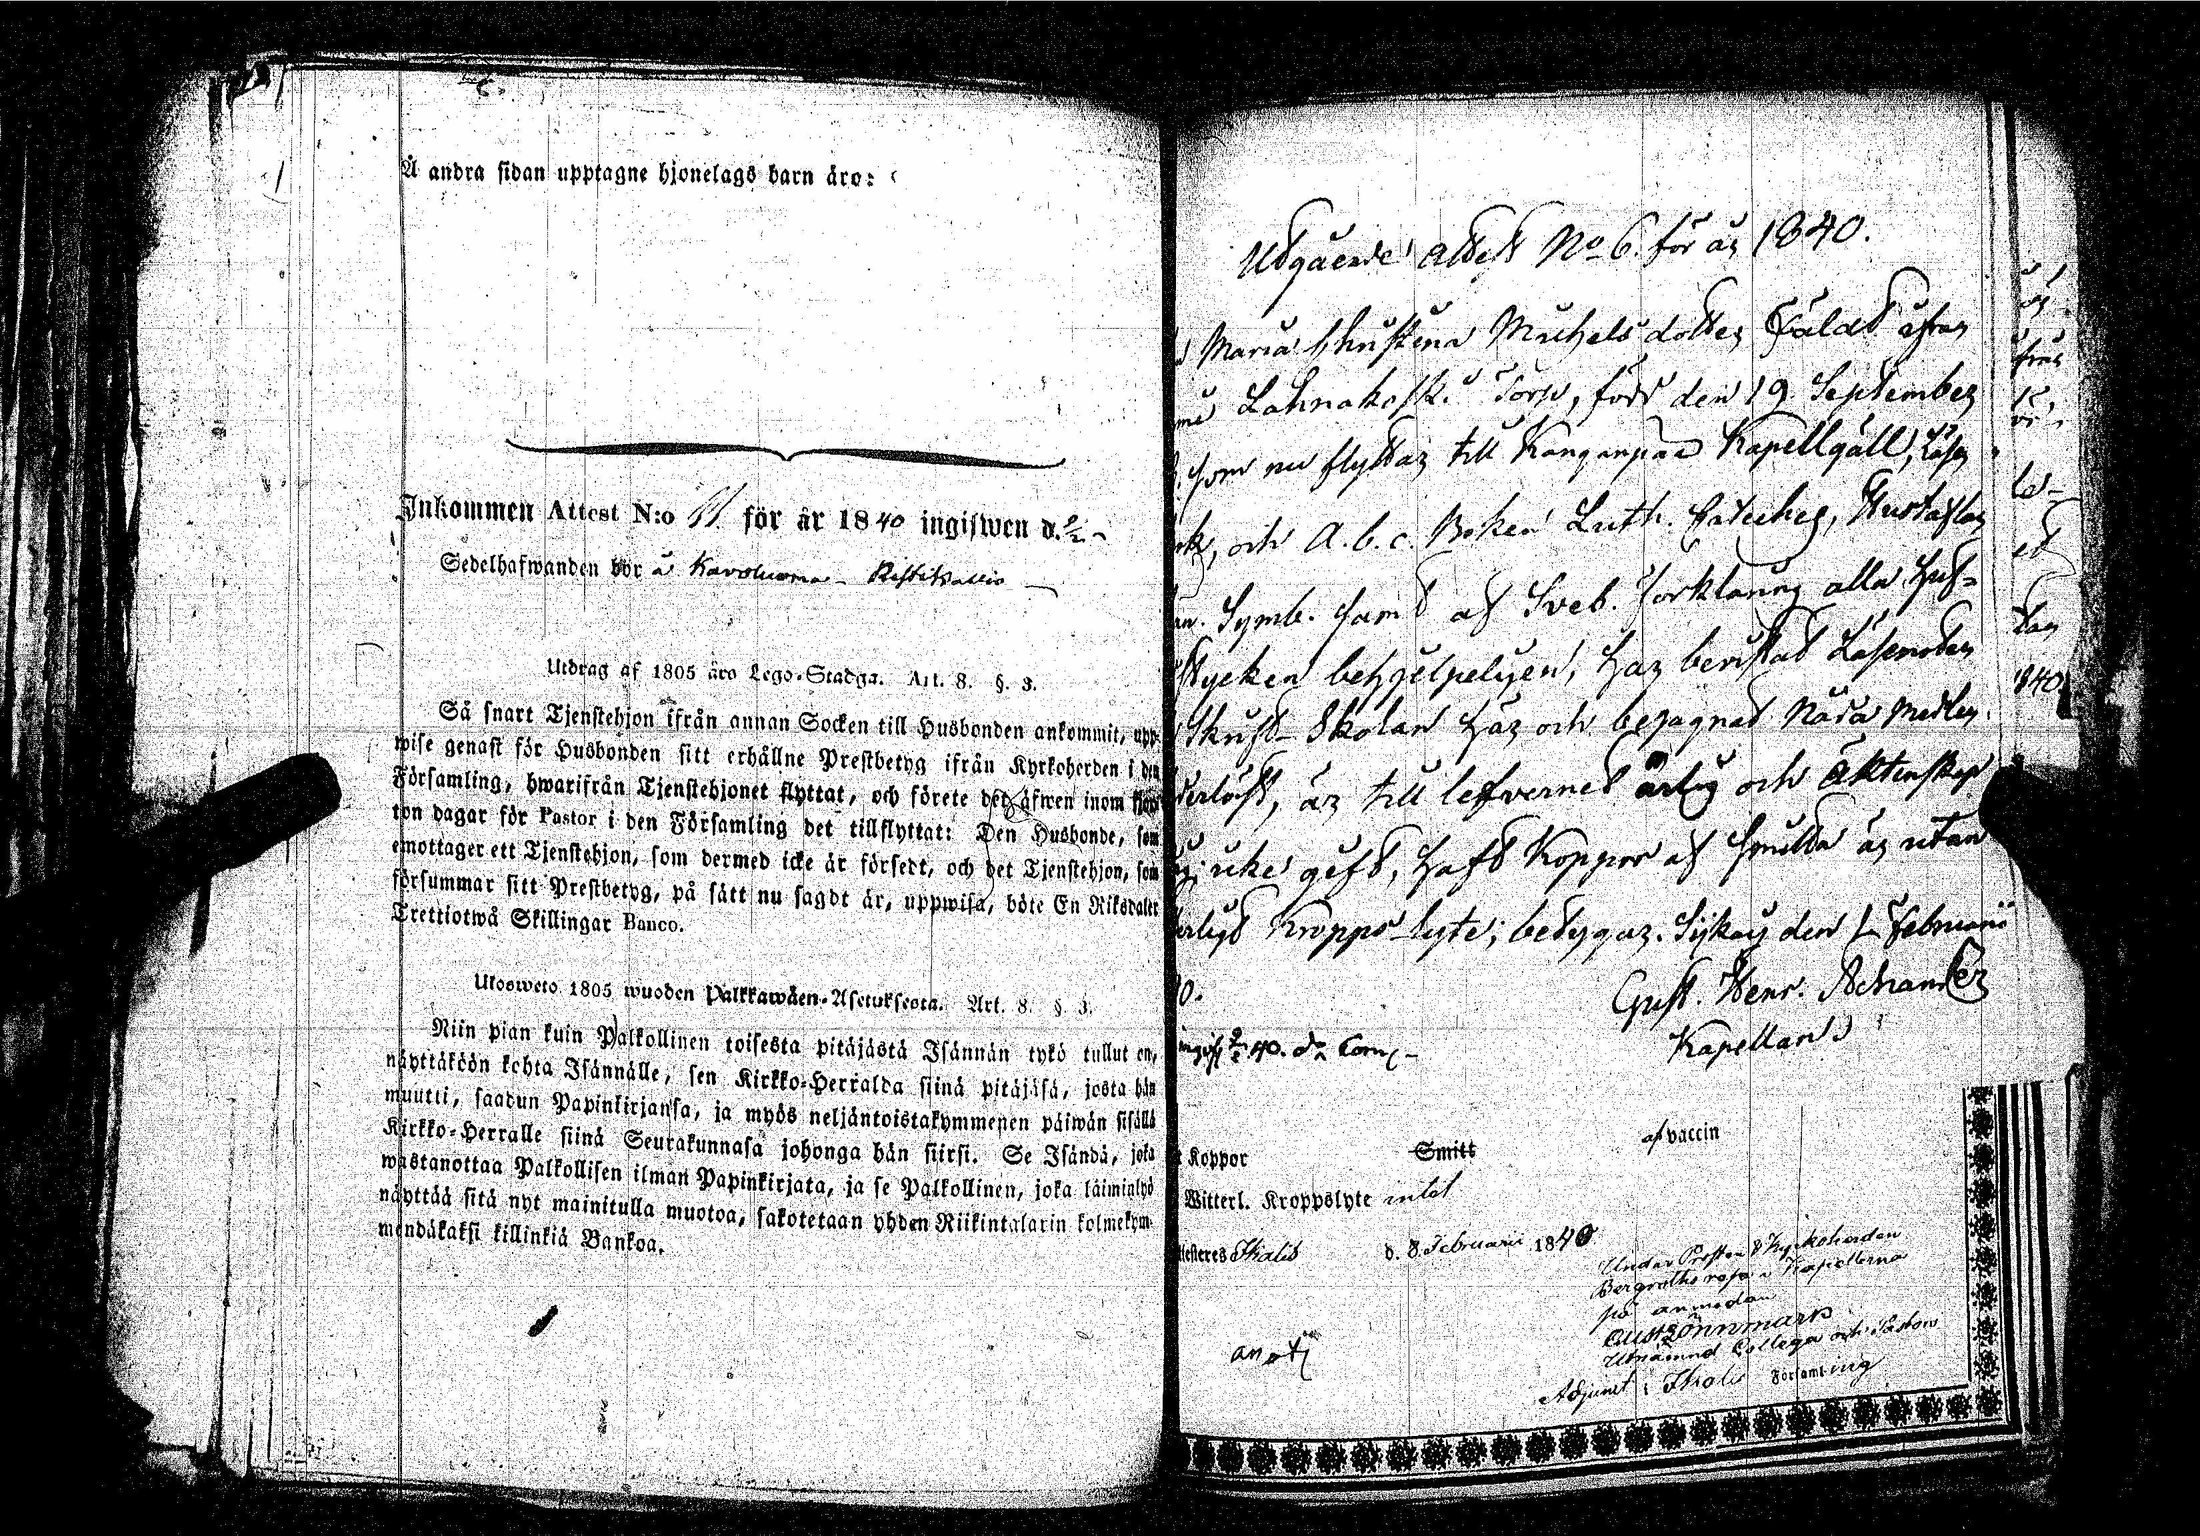 Å andra sidan upptagne hjonelags barn äro:
Inkommen Attest N:o 11. för år 1840 ingifwen d. 9/2
Sedelhafwanden bor å Karoluoma Ristikallio
Utdrag af 1805 års Lego-Stadga. Art. 8. §. 3.
Så snart Tjenstehjon ifrån annan Socken till Husbonden ankommit, upp-
wise genast för Husbonden sitt erhållne Prestbetyg ifrån Kyrkoherden i den
Församling, hwarifrån Tjenstehjonet flyttat, och förete det äfwen inom fjor-
ton dagar för Pastor i den Församling det tillflyttat: Den Husbonde, som
emottager ett Tjenstehjon, som dermed icke är försedt, och det Tjenstehjon, som
försummar sitt Prestbetyg, på sätt nu sagdt är, uppwisa, böte En Riksdaler
Trettiotwå Skillingar Banco.
Ulosweto 1805 wuoden Palkkawäen-Asetuksesta. Art. 8. §. 3.
Niin pian kuin Palkollinen toisesta pitäjästä Isännän tykö tullut on,
näyttäköön kohta Isännälle, sen Kirkko-Herralda siinä pitäjäsä, josta hän
muutti, saadun Papinkirjansa, ja myös neljäntoistakymmenen päiwän sisällä
Kirkko-Herralle siinä Seurakunnasa johonga hän siirsi. Se Isändä, joka
wastanottaa Palkollisen ilman Papinkirjata, ja se Palkollinen, joka läiminlyö
näyttää sitä nyt mainitulla muotoa, sakotetaan yhden Riikintalarin kolmekym-
mendäkaksi killinkiä Bankoa.
Utgående attest No 6. för år 1840.
Maria Christina Michelsdotter Fält ifrån
Lahnakoski Torp, född den 19 September
som nu flyttar till Kangarpää Kapellgäll, Läser
och A.b.c. Boken Luth. Cateches, Hustaflan
Symb. samt af Sveb. Förklaring alla Huf-
stycken behjelpeligen, har bevistat Läsemöten
Skrift Skolan här och begagnat Nåra Medlen
är till lefvernet ärlig och äktenskap
icke gift, haft Koppor af smitta är utan
Kropps-lyte; betygar. Siikais den 1 Februarii
Gust. Henr.
Kapellan
40. Com
Koppor Smitt af vaccin
Witterl. Kroppslyte intet
Attesteras Ikalis d. 8 Februarii 1840
Under Prosten & Kyrkoherden
Bergroths resa i Kapellerna
på anmodan
Gust Lönnmark
Utnämnd Collega och Pastors
Adjunct i Ikalis Församling
anott
1840